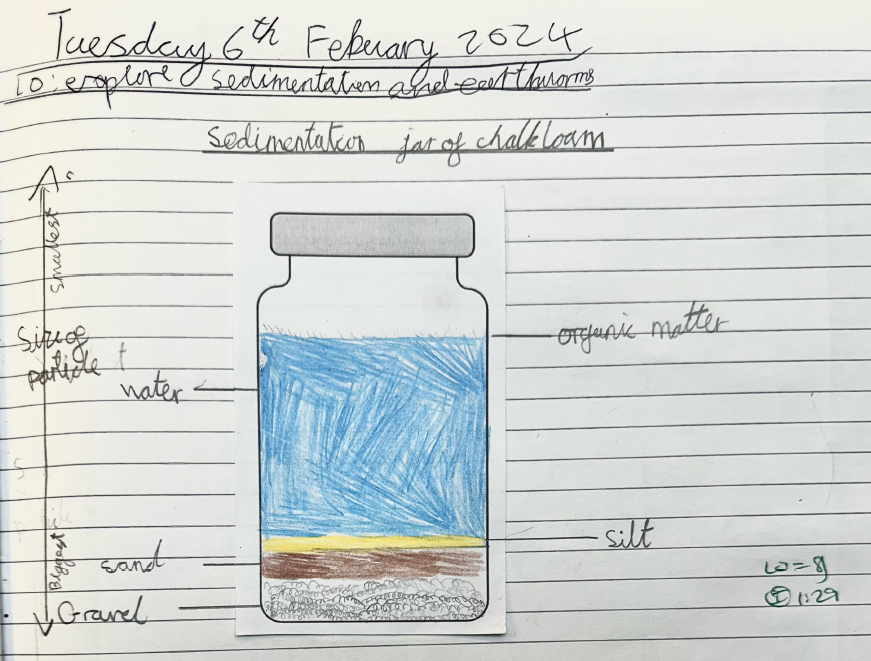 Tuesday 6th Febuary 2024
LO: explore sedimentation and earthworms
Sedimentation jar of chalk loam
Smallest
Size of
particle
water
organic matter
silt
sand
Biggest
Gravel
LO = 8